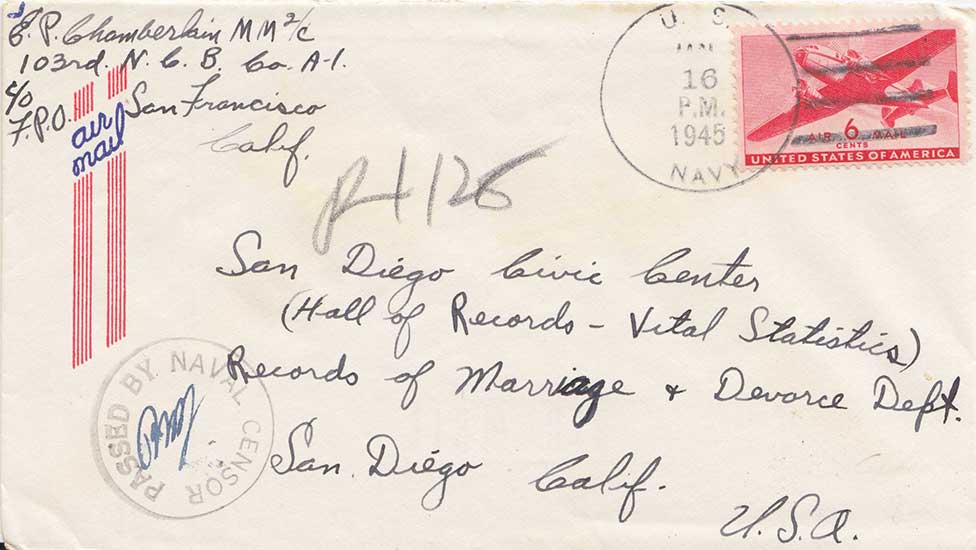 E. P. Chamberlain MM 2/c
103rd. N. C. B. Co. A-1.
c/o
F.P.O. San Francisco
Calif.
air
mail
U. S.
JAN
16
P.M.
1945
NAVY
AIR 6 MAIL
CENTS
UNITED STATES OF AMERICA
1126
San Diego Civic Center
(Hall of Records - Vital Statistics)
Records of Marriage + Devorce Dept.
San Diego Calif.
U.S.A.
PASSED BY NAVAL CENSOR